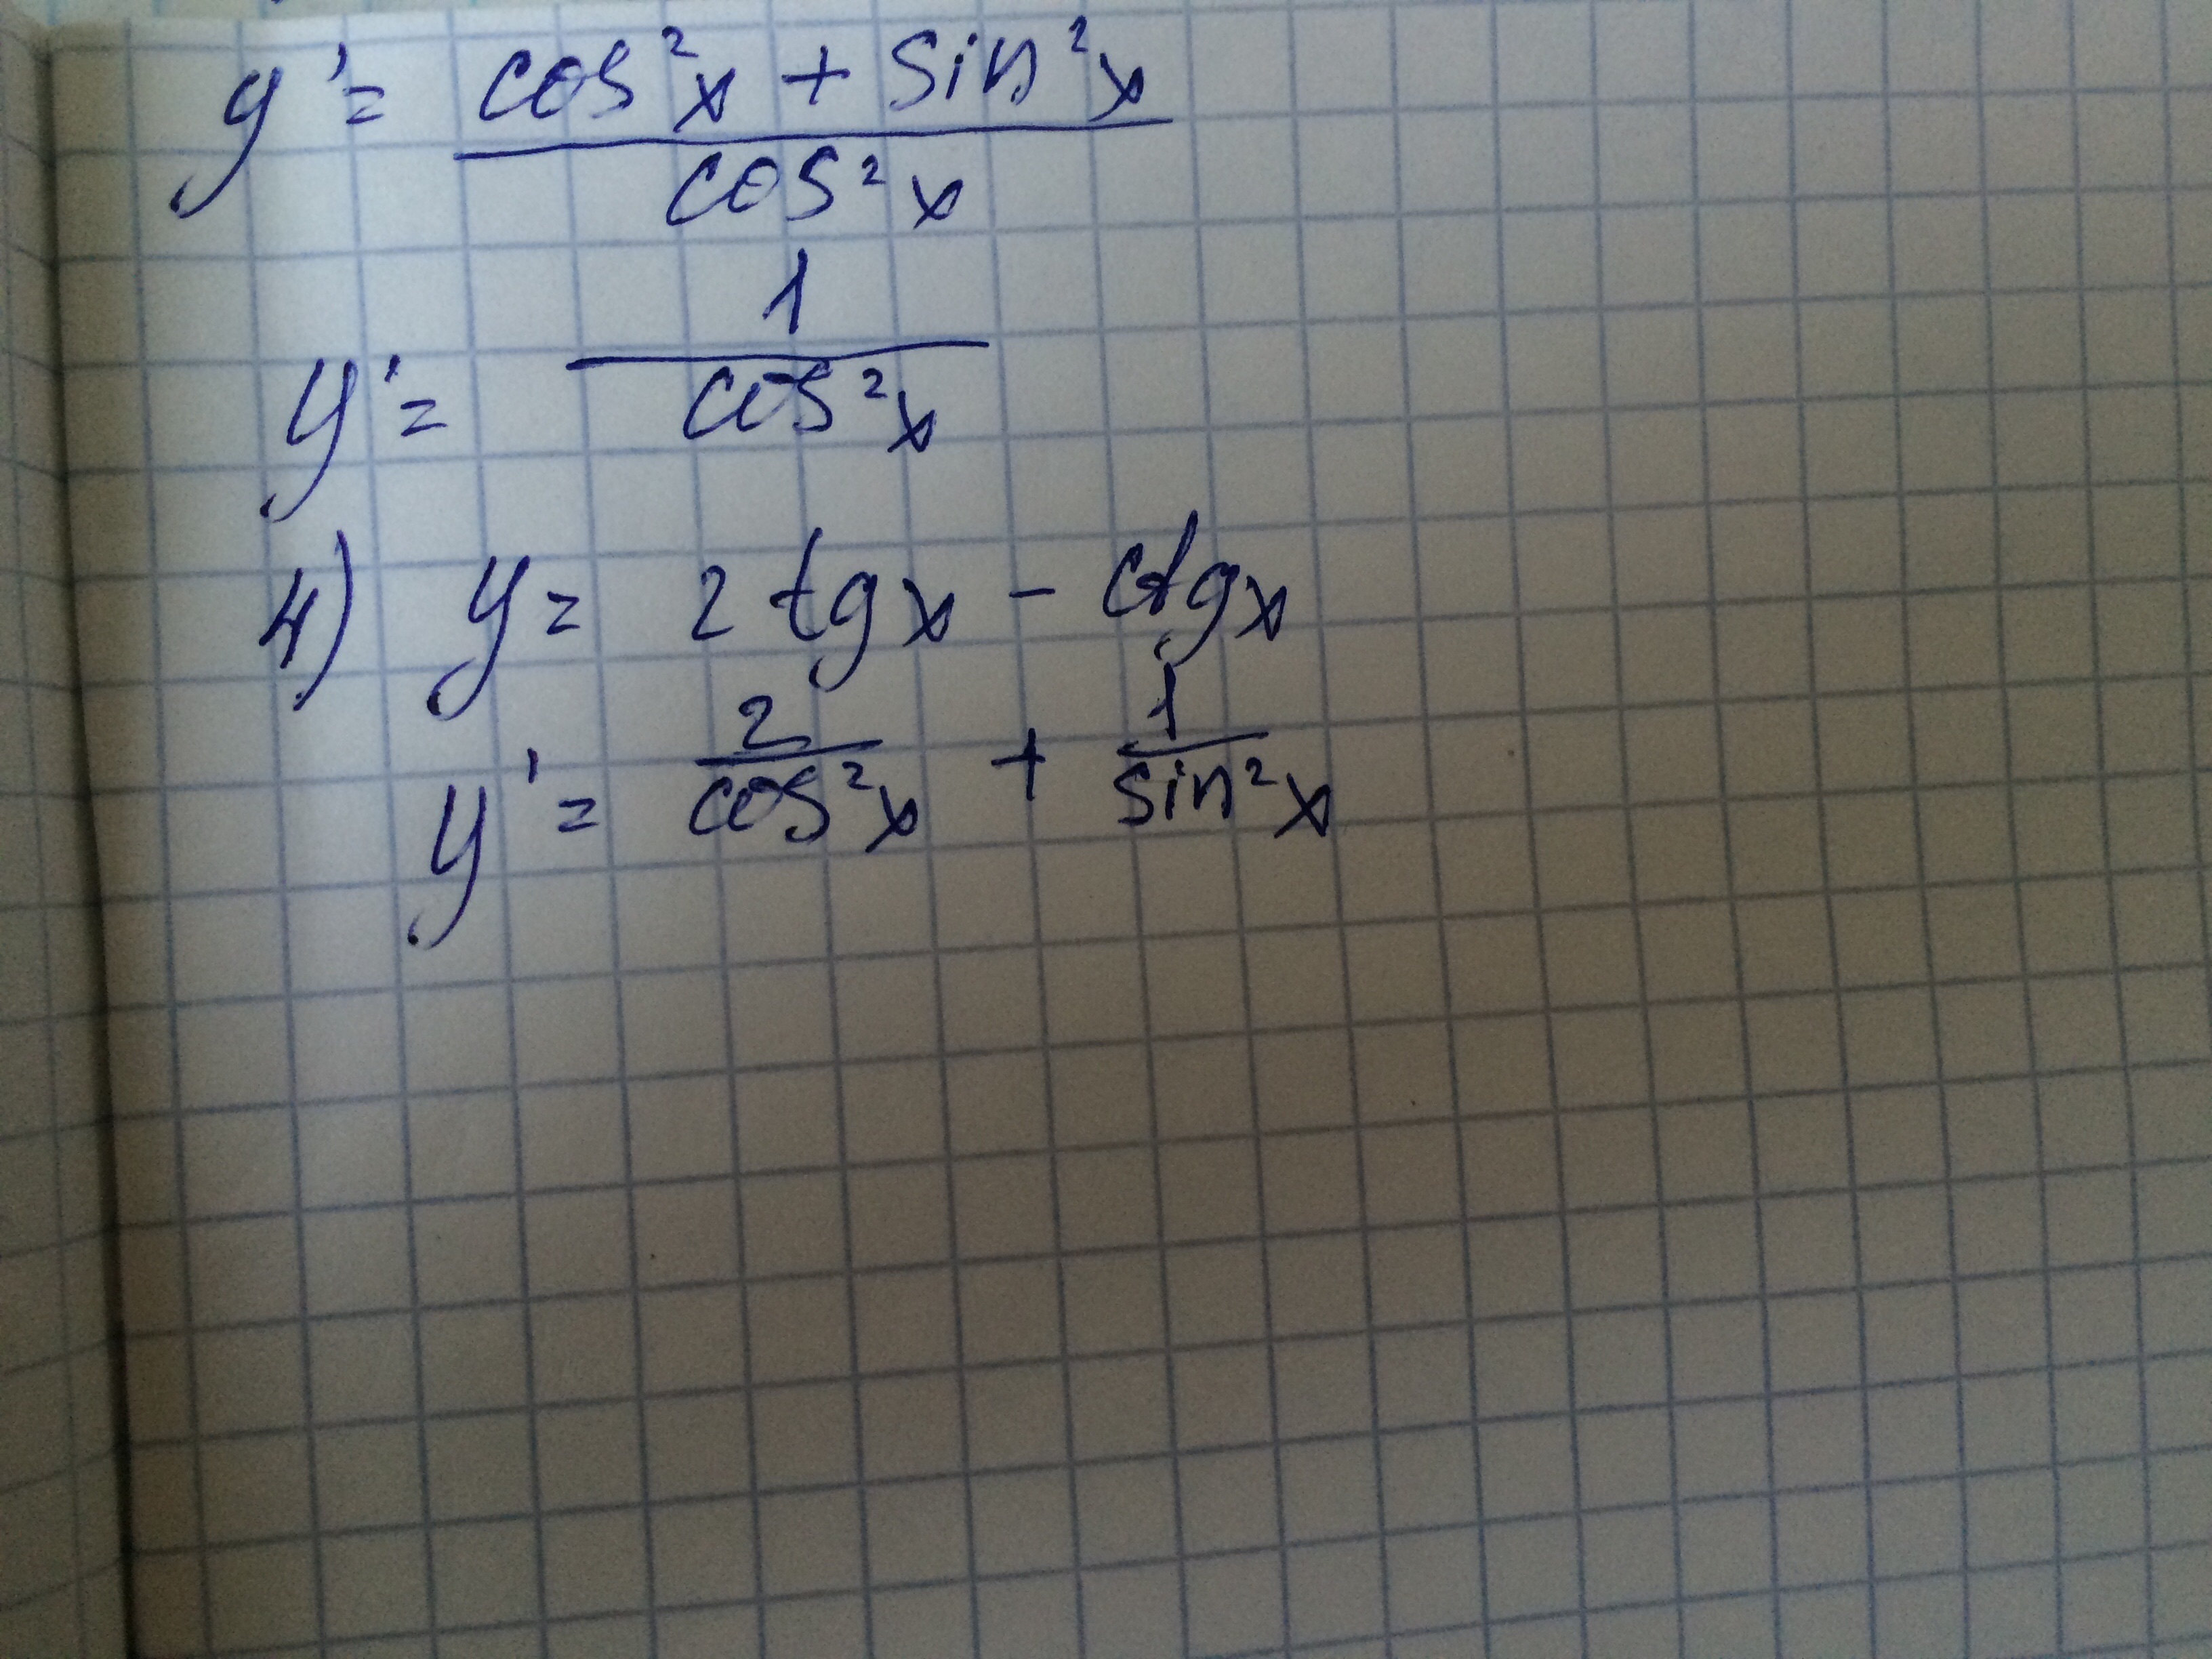 y' = (cos²x + sin²x) / cos²x
y' = 1 / cos²x
4) y = 2 tgx - ctgx
y' = 2 / cos²x + 1 / sin²x